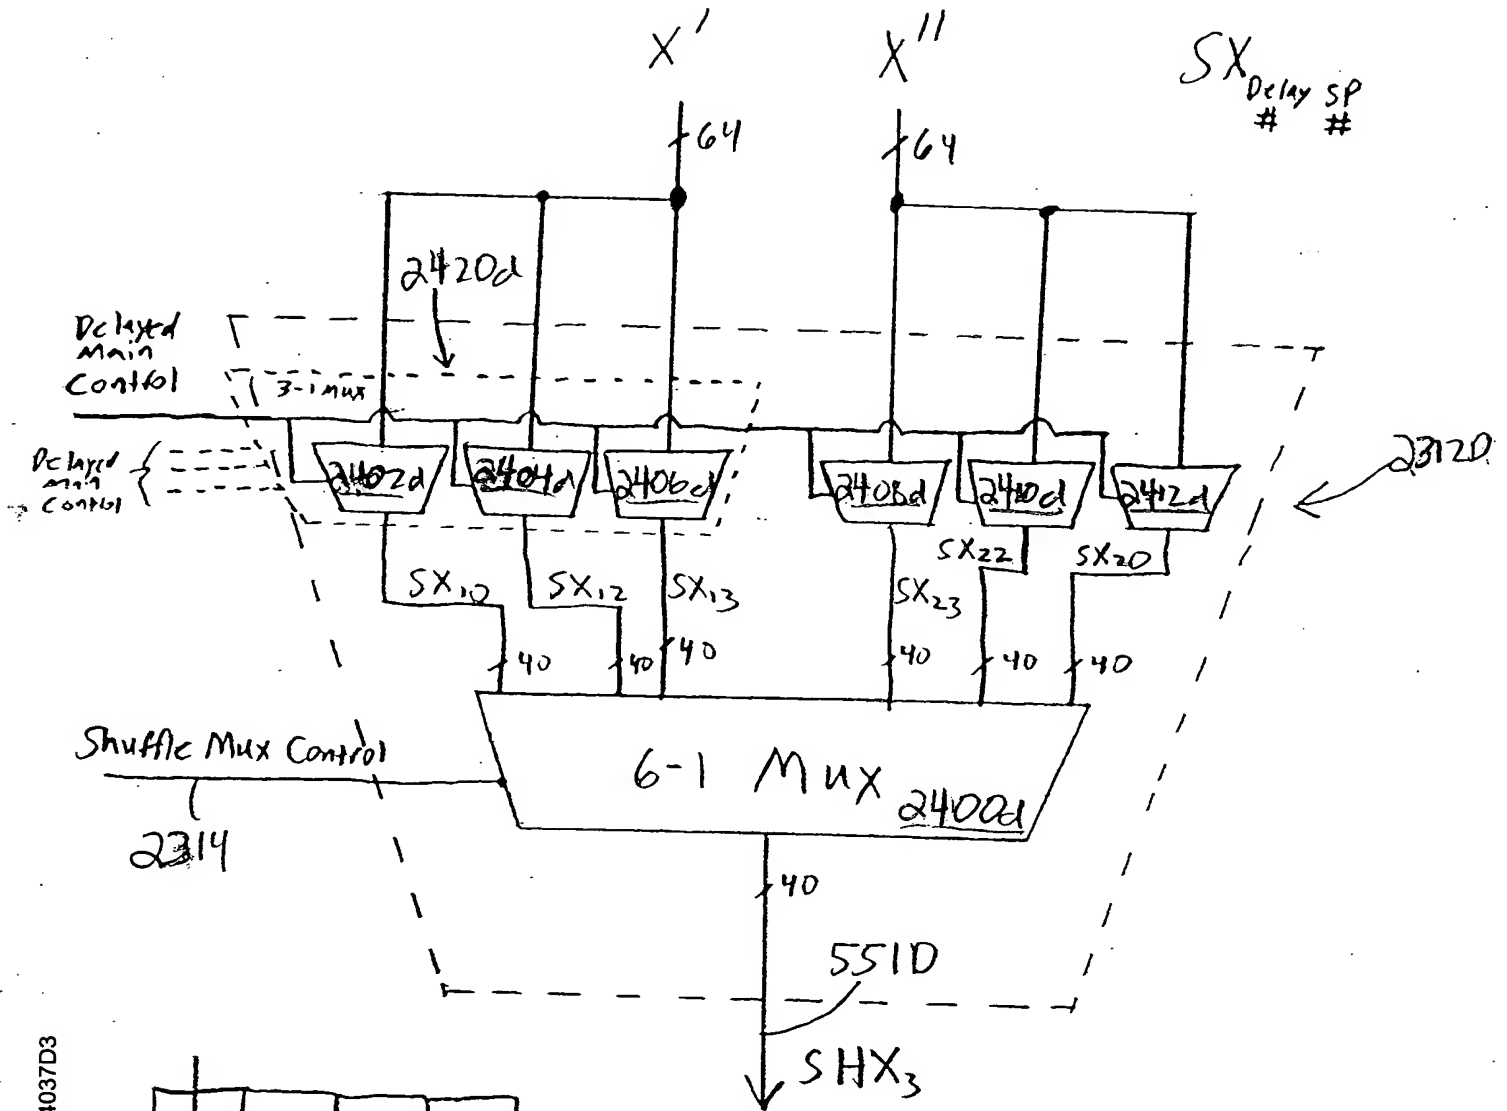 X' X'' SX Delay # SP #
64 64
2420d
Delayed
Main
Control
3-1 mux
Delayed
Main
Control
2402d 2404d 2406d 2408d 2410d 2412d
2312D
SX10 SX12 SX13 SX23 SX22 SX20
40 40 40 40 40 40
Shuffle Mux Control
6-1 Mux
2400d
2314
40
551D
SHX3
4037D3